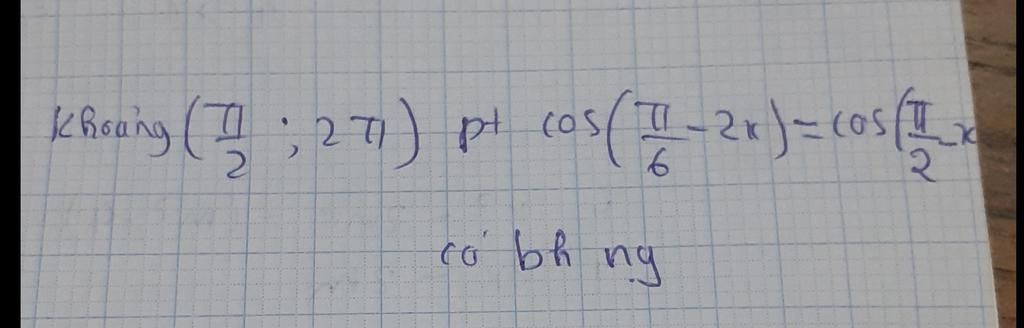 Khoảng (π/2 ; 2π) pt cos(π/6 - 2x) = cos(π/2 - x
có bh ng